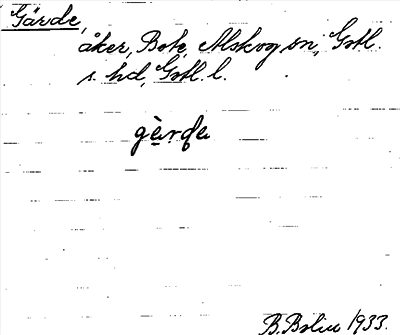 Gärde,
åker, Bote, Alskog sn, Gotl.
s. hd, Gotl. l.
gèrda
B. Bolin 1933.